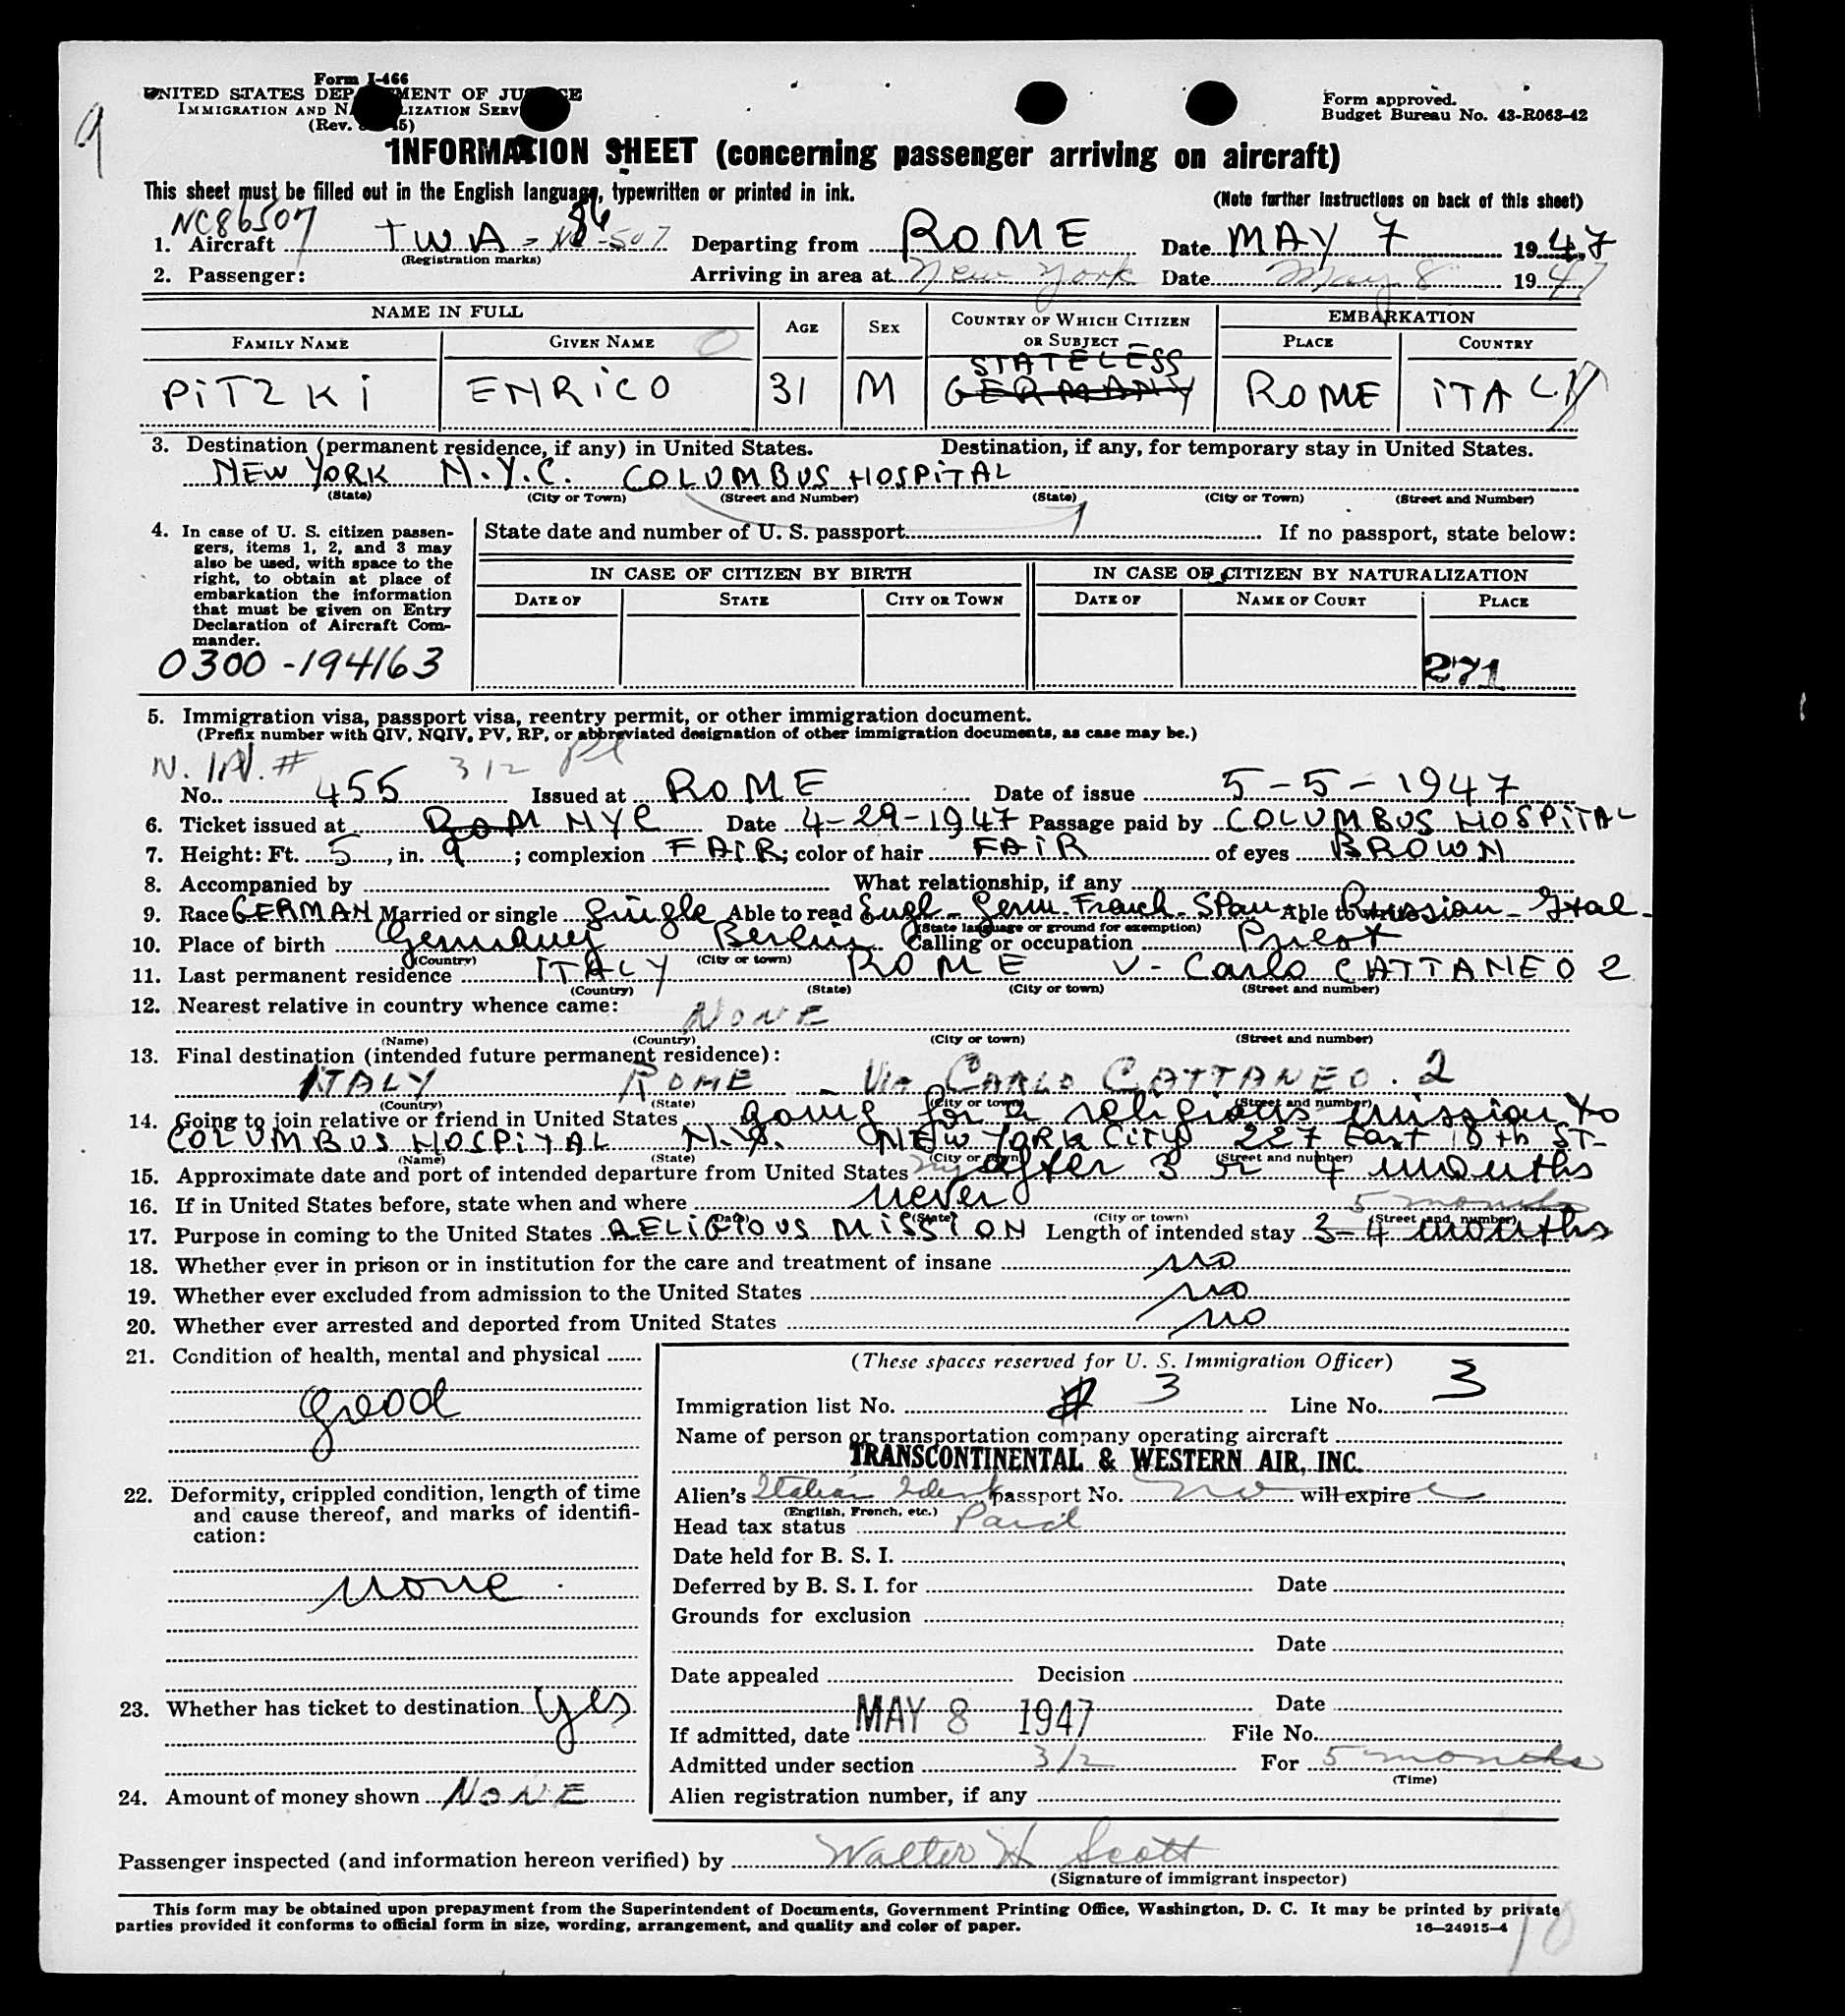 Form I-466
UNITED STATES DEPARTMENT OF JUSTICE
IMMIGRATION AND NATURALIZATION SERV
(Rev. 45)
Form approved.
Budget Bureau No. 43-R063-42
9
INFORMATION SHEET (concerning passenger arriving on aircraft)
This sheet must be filled out in the English language, typewritten or printed in ink. (Note further instructions on back of this sheet)
NC86507 86
1. Aircraft TWA - NC-507 Departing from ROME Date MAY 7 1947
(Registration marks)
2. Passenger: Arriving in area at New York Date May 8 1947
NAME IN FULL AGE SEX COUNTRY OF WHICH CITIZEN OR SUBJECT EMBARKATION
FAMILY NAME GIVEN NAME PLACE COUNTRY
STATELESS
PITZKI ENRICO 31 M GERMANY ROME ITALY
3. Destination (permanent residence, if any) in United States. Destination, if any, for temporary stay in United States.
NEW YORK N.Y.C. COLUMBUS HOSPITAL
(State) (City or Town) (Street and Number) (State) (City or Town) (Street and Number)
4. In case of U. S. citizen passen-
gers, items 1, 2, and 3 may
also be used, with space to the
right, to obtain at place of
embarkation the information
that must be given on Entry
Declaration of Aircraft Com-
mander.
0300-194163
State date and number of U. S. passport If no passport, state below:
IN CASE OF CITIZEN BY BIRTH IN CASE OF CITIZEN BY NATURALIZATION
DATE OF STATE CITY OR TOWN DATE OF NAME OF COURT PLACE
271
5. Immigration visa, passport visa, reentry permit, or other immigration document.
(Prefix number with QIV, NQIV, PV, RP, or abbreviated designation of other immigration documents, as case may be.)
3/2
No. 455 Issued at ROME Date of issue 5-5-1947
6. Ticket issued at NYC Date 4-29-1947 Passage paid by COLUMBUS HOSPITAL
7. Height: Ft. 5, in. 9; complexion FAIR; color of hair FAIR of eyes BROWN
8. Accompanied by What relationship, if any
9. Race GERMAN Married or single Single Able to read Engl - Germ. Franch - Span - Able to write Russian - Ital.
(State language or ground for exemption)
10. Place of birth Germany Berlin Calling or occupation Priest
(Country) (City or town)
11. Last permanent residence ITALY ROME V - Carlo CATTANEO 2
(Country) (State) (City or town) (Street and number)
12. Nearest relative in country whence came: NONE
(Name) (Country) (City or town) (Street and number)
13. Final destination (intended future permanent residence):
ITALY ROME - Via CARLO CATTANEO. 2
(Country) (State) (City or town) (Street and number)
14. Going to join relative or friend in United States going for a religious mission to
COLUMBUS HOSPITAL N.Y. NEW YORK CITY 227 East 18th ST-
(Name) (State) (City or town) (Street and number)
15. Approximate date and port of intended departure from United States NY after 3 or 4 months
16. If in United States before, state when and where never
(Date) (State) (City or town) (Street and number)
5 months
17. Purpose in coming to the United States RELIGIOUS MISSION Length of intended stay 3-4 months
18. Whether ever in prison or in institution for the care and treatment of insane no
19. Whether ever excluded from admission to the United States no
20. Whether ever arrested and deported from United States no
21. Condition of health, mental and physical
good
22. Deformity, crippled condition, length of time
and cause thereof, and marks of identifi-
cation:
none.
23. Whether has ticket to destination yes
24. Amount of money shown NONE
(These spaces reserved for U. S. Immigration Officer)
Immigration list No. 3 Line No. 3
Name of person or transportation company operating aircraft
TRANSCONTINENTAL & WESTERN AIR, INC.
Alien's Italian Ident passport No. no will expire
(English, French, etc.)
Head tax status Paid
Date held for B. S. I.
Deferred by B. S. I. for Date
Grounds for exclusion
Date
Date appealed Decision
Date
If admitted, date MAY 8 1947 File No.
Admitted under section 3/2 For 5 months
(Time)
Alien registration number, if any
Passenger inspected (and information hereon verified) by Walter H Scott
(Signature of immigrant inspector)
This form may be obtained upon prepayment from the Superintendent of Documents, Government Printing Office, Washington, D. C. It may be printed by private
parties provided it conforms to official form in size, wording, arrangement, and quality and color of paper. 16—24915-4
10